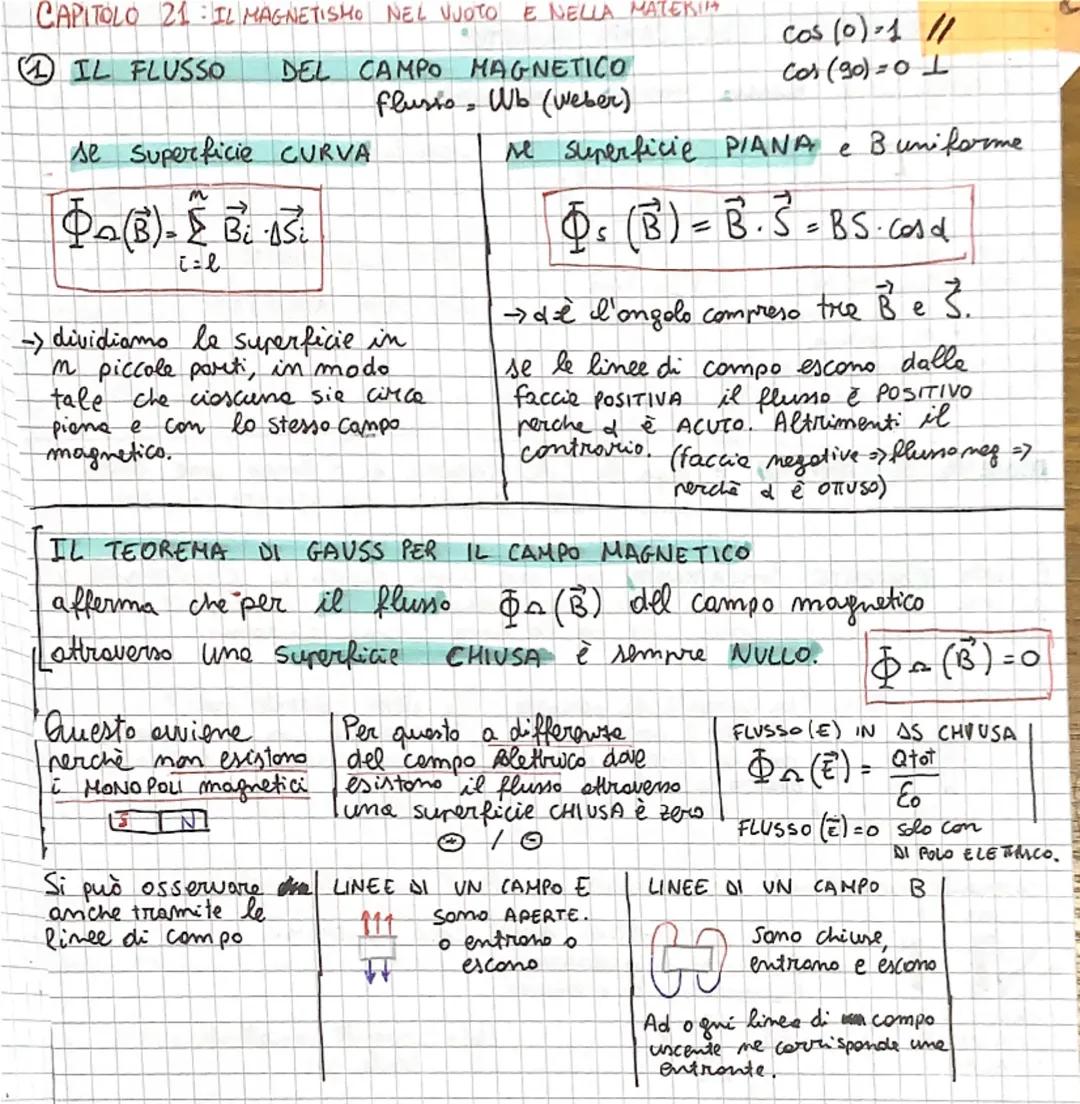 CAPITOLO 21 : IL MAGNETISMO NEL VUOTO E NELLA MATERIA
cos (0) = 1 //
cos (90) = 0 ⊥
① IL FLUSSO DEL CAMPO MAGNETICO
flusso = Wb (weber)
se superficie CURVA
Φ_Ω(B⃗) = Σ B⃗i · ΔS⃗i
n
i=1
→ dividiamo la superficie in
n piccole parti, in modo
tale che ciascuna sia circa
piana e con lo stesso campo
magnetico.
se superficie PIANA e B uniforme
Φs (B⃗) = B⃗ · S⃗ = BS · cos α
→ α è l'angolo compreso tra B⃗ e S⃗.
se le linee di campo escono dalla
faccia POSITIVA il flusso è POSITIVO
perche α è ACUTO. Altrimenti il
contrario. (faccia negativa => flusso neg =>
perchè α è OTTUSO)
IL TEOREMA DI GAUSS PER IL CAMPO MAGNETICO
afferma che per il flusso Φ_Ω (B⃗) del campo magnetico
attraverso una superficie CHIUSA è sempre NULLO.
Φ_Ω (B⃗) = 0
Questo avviene
perchè non esistono
i MONOPOLI magnetici
S N
Per questo a differenza
del campo elettrico dove
esistono il flusso attraverso
una superficie CHIUSA è zero
⊕ / ⊖
FLUSSO (E) IN ΔS CHIUSA
Φ_Ω (E⃗) = Qtot / ε0
FLUSSO (E⃗) = 0 solo con
DI POLO ELETTRICO.
Si può osservare
anche tramite le
linee di campo
LINEE DI UN CAMPO E
sono APERTE.
o entrano o
escono
LINEE DI UN CAMPO B
sono chiuse,
entrano e escono
Ad ogni linea di campo
uscente ne corrisponde una
entrante.